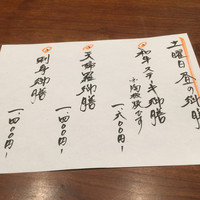 土曜日昼の御膳
和牛ステーキ御膳
小陶板焼き
一、六〇〇円
天婦羅御膳
一、四〇〇円
刺身御膳
一、四〇〇円